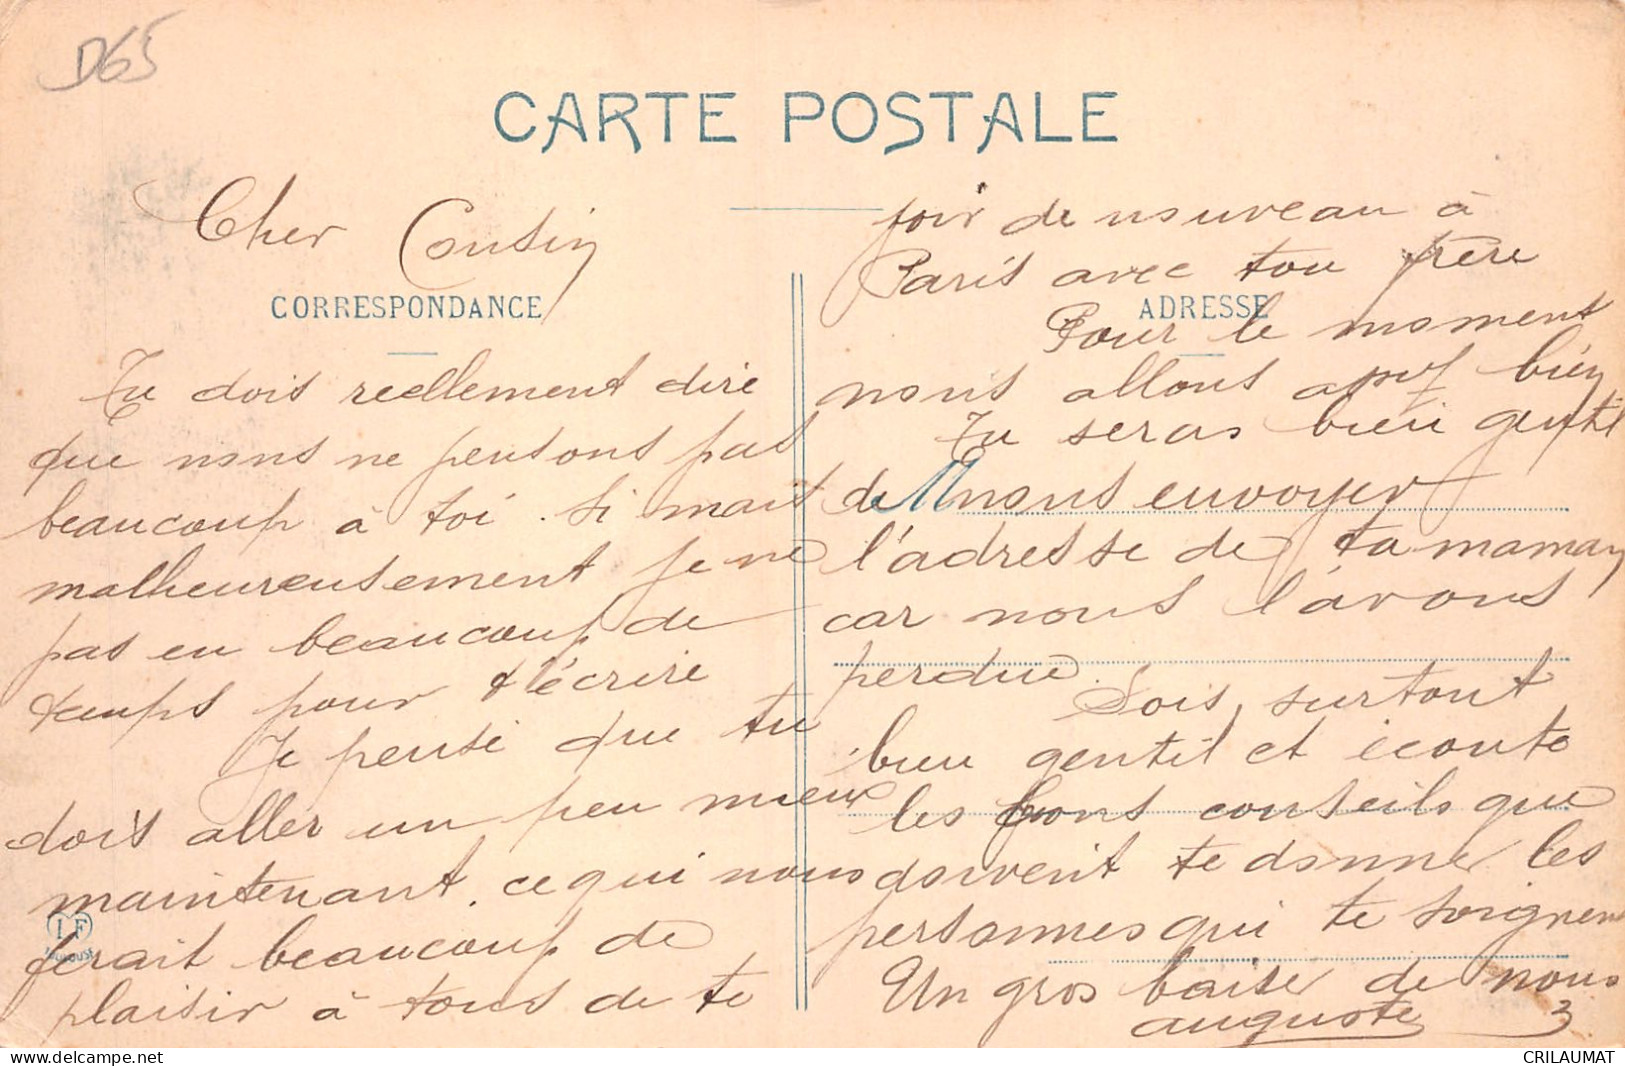 D65
CARTE POSTALE
Cher Cousin
CORRESPONDANCE
Tu dois reellement dire
que nous ne pensons pas
beaucoup à toi. Si mais
malheureusement je ne
pas eu beaucoup de
temps pour t'écrire
Je pense que tu
dois aller un peu mieux
maintenant. ce qui nous
ferait beaucoup de
plaisir à tous de te
voir de nouveau à
Paris avec ton frère
ADRESSE
Pour le moment
nous allons bien
Tu seras bien gentil
de nous envoyer
l'adresse de ta maman
car nous l'avons
perdue.
Sois surtout
bien gentil et écoute
les bons conseils que
doivent te donner les
personnes qui te soignent
Un gros baiser de nous 3
auguste
IF
TOULOUSE
CRILAUMAT